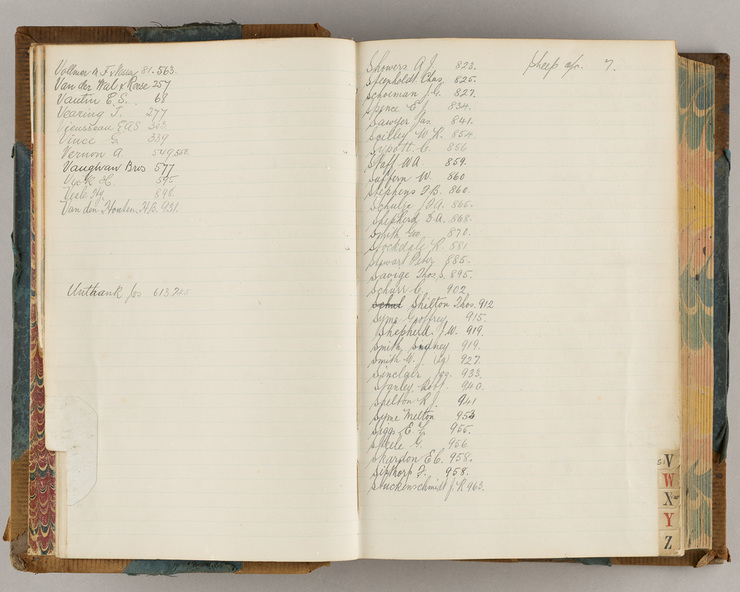 Vollmer 81. 563.
Van der Wal & Reese 257
Vautin E. S. 68
Vearing J. 277
E A S
Vince G 339
Vernon A.
Vaughan Bros 577
H.
898.
Van den Houten H.B. 931.
Unthank Jos 613
Showers A J. 823.
Chas 825.
Schoeman J G. 827.
Spence E J 834.
Sawyer Jas 841.
Scilley W. R. 854
Sypott C. 856
Staff W A. 859.
Saffern W. 860
Stephens F. B. 860.
Schulze 865.
Shepherd D. A. 868.
Smith Geo. 870.
Stockdale R. 881
Stewart Peter 885.
Savige Thos. S. 895.
Scharr C. 902
Shilton Thos. 912
Syme Geoffrey 915.
Shepherd J. W. 919.
Smith Sydney 919.
Smith W. J 927
Sinclair Geo. 933.
Stanley Robt. 940.
Shelton R J 941
Syme Melton 953
E. 955.
Steele G. 956
Skardon E C. 958.
Sibthorp F. 958.
Stuckenschmidt J R 963.
Sheep a/c. 7.
V
W
X
Y
Z